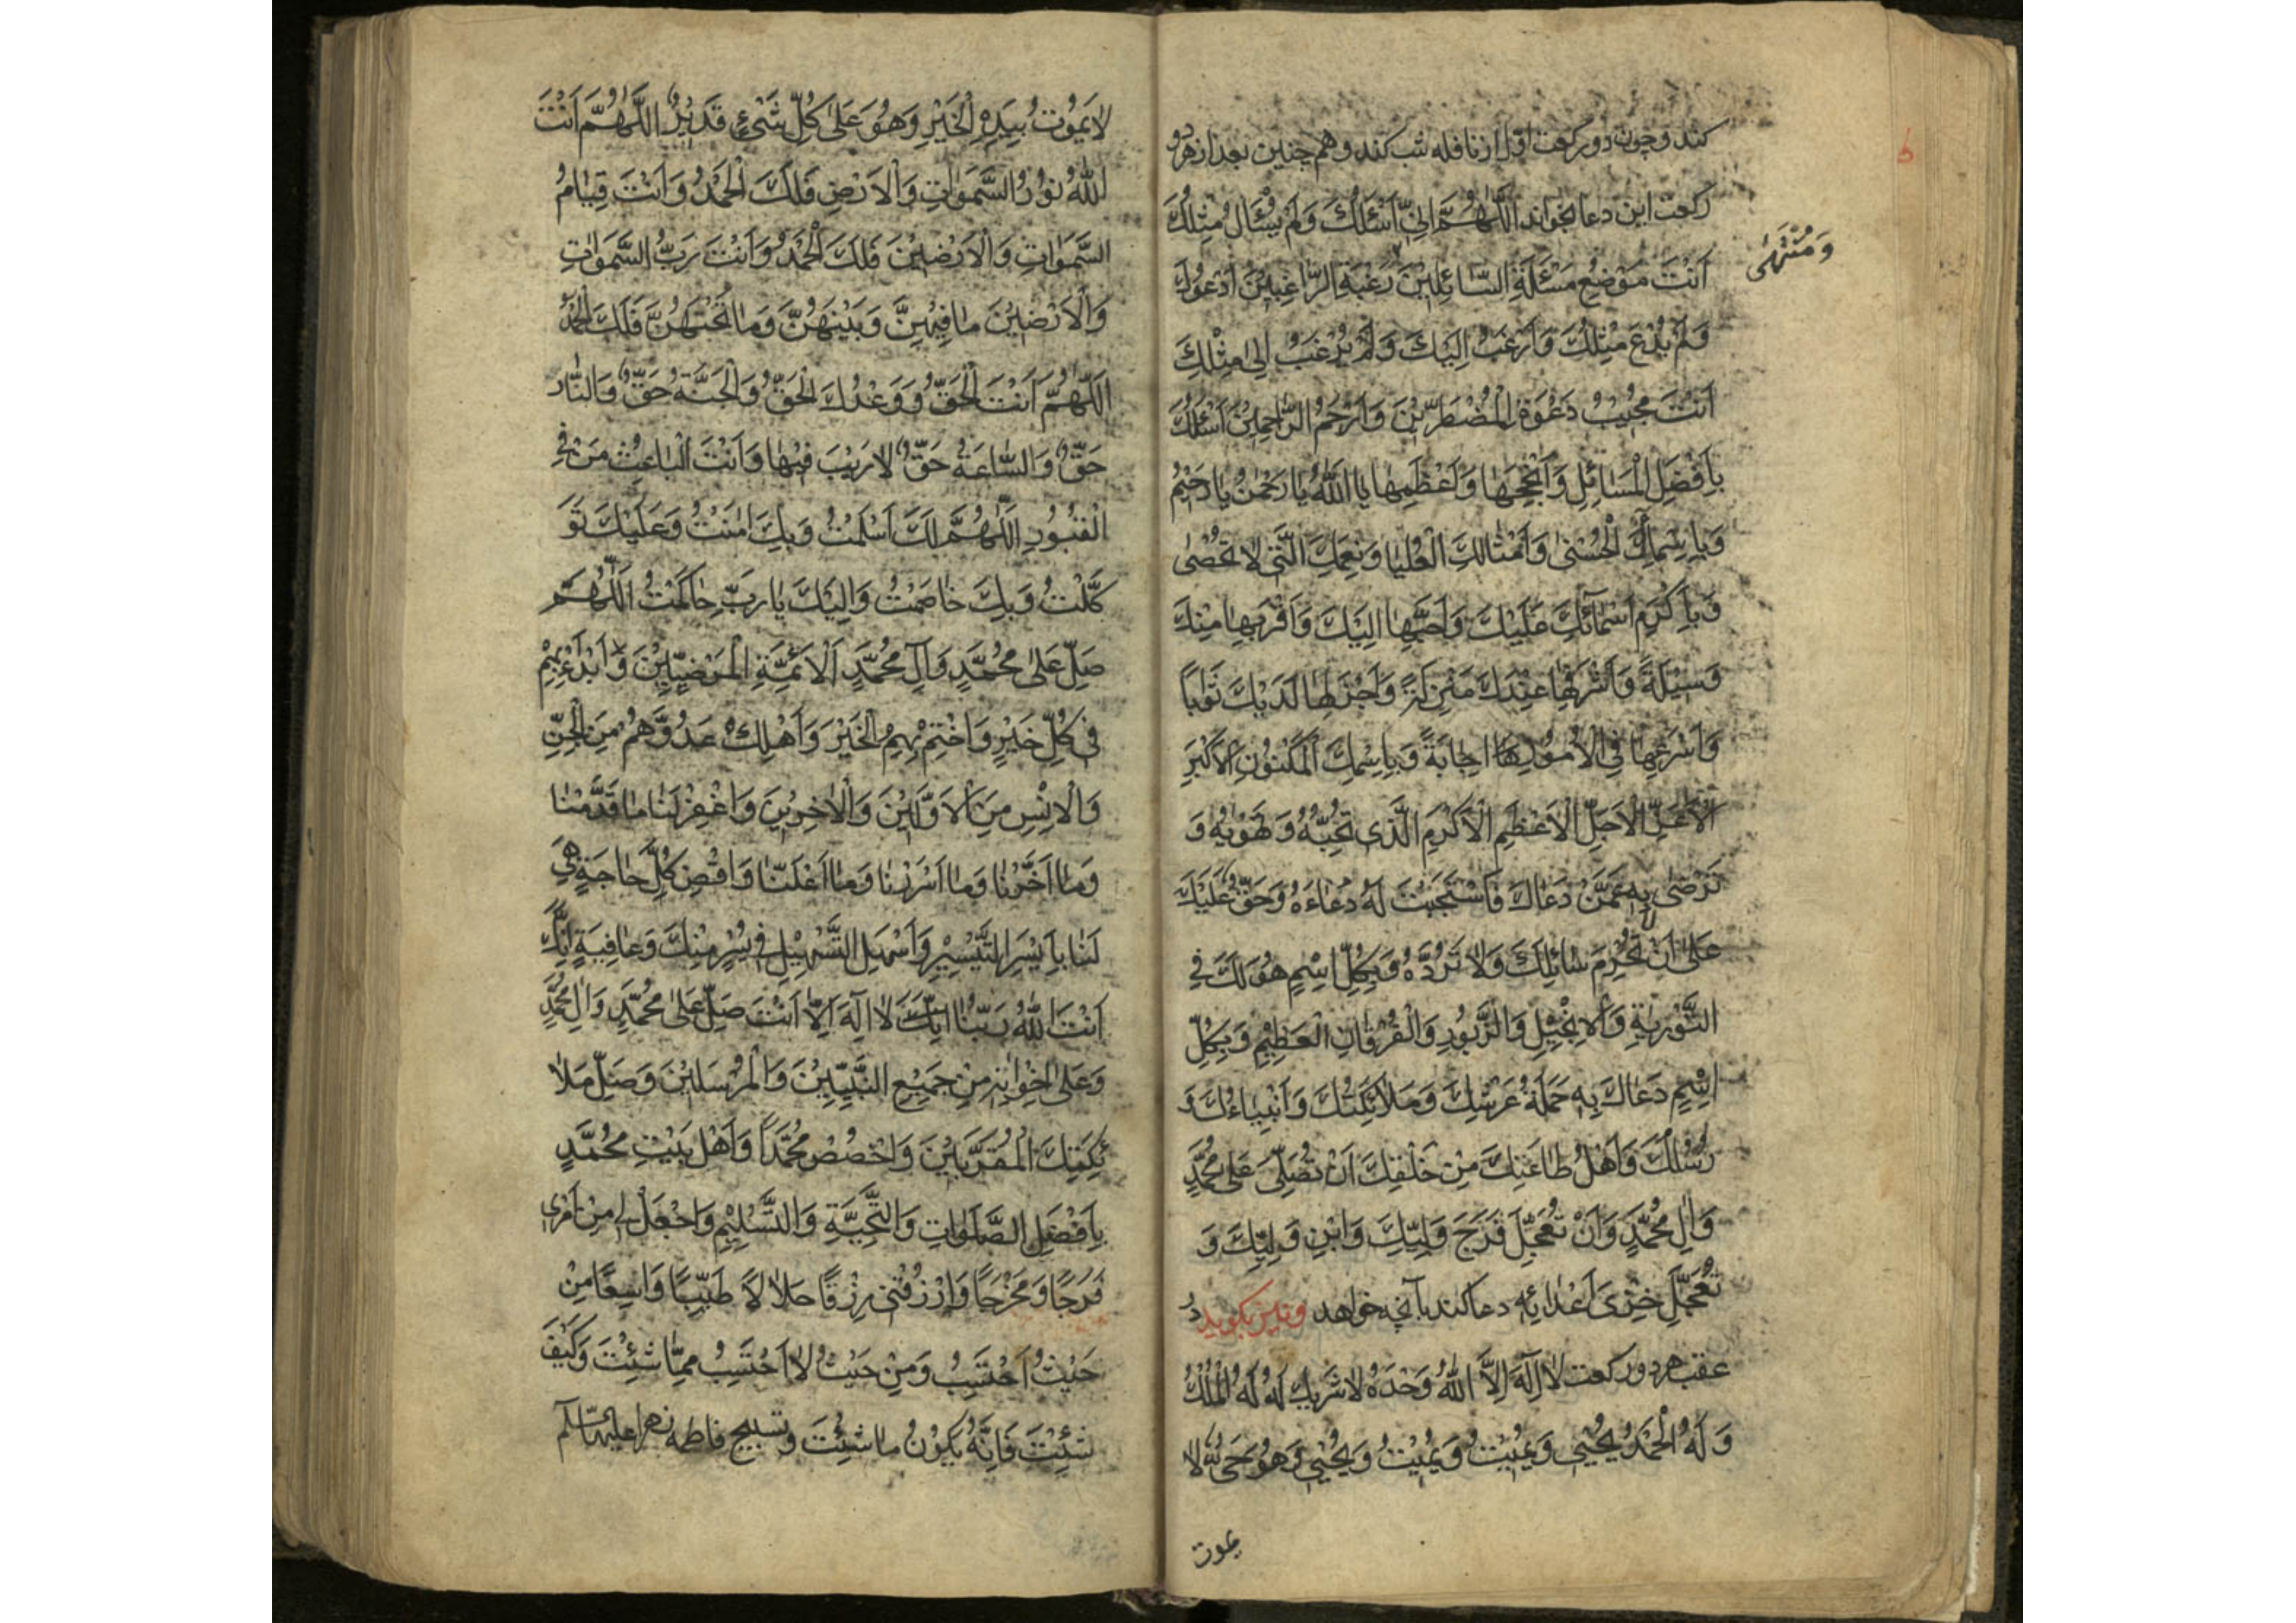 کند و چون دو رکعت اول از نافله شب کند و هم چنین بعد از هر دو
رکعت این دعا بخواند اَللّٰهُمَّ اِنّی اَسْئَلُكَ وَلَمْ يُسْئَلْ مِثْلُكَ
اَنْتَ مَوْضِعُ مَسْئَلَةِ السّٰائِلِيْنَ رَغْبَةِ الرّٰاغِبِيْنَ اَدْعُوكَ
وَمُنْتَهىٰ
وَلَمْ يُدْعَ مِثْلُكَ وَاَرْغَبُ اِلَيْكَ وَلَمْ يُرْغَبْ اِلىٰ مِثْلِكَ
اَنْتَ مُجِيْبُ دَعْوَةِ الْمُضْطَرّيْنَ وَاَرْحَمُ الرّٰاحِمِيْنَ اَسْئَلُكَ
بِاَفْضَلِ الْمَسٰائِلِ وَاَنْجَحِهٰا وَاَعْظَمِهٰا يٰا اَللّٰهُ يٰا رَحْمٰنُ يٰا رَحيْمُ
وَبِاَسْمٰائِكَ الْحُسْنىٰ وَاَمْثٰالِكَ الْعُلْيٰا وَنِعَمِكَ الَّتى لاٰ تُحْصٰى
وَبِاَكْرَمِ اَسْمٰآئِكَ عَلَيْكَ وَاَحَبِّهٰا اِلَيْكَ وَاَقْرَبِهٰا مِنْكَ
وَسيْلَةً وَاَشْرَفِهٰا عِنْدَكَ مَنْزِلَةً وَاَجْزَلِهٰا لَدَيْكَ ثَوٰاباً
وَاَسْرَعِهٰا فِى الْاُمُوْرِ اِجٰابَةً وَبِاِسْمِكَ الْمَكْنُوْنِ الْاَكْبَرِ
الْاَعَزِّ الْاَجَلِّ الْاَعْظَمِ الْاَكْرَمِ الَّذى تُحِبُّهُ وَتَهْوٰيهُ وَ
تَرْضٰى بِهِ عَمَّنْ دَعٰاكَ فَاسْتَجَبْتَ لَهُ دُعٰاءَهُ وَحَقٌّ عَلَيْكَ
عَلىٰ اَنْ تَحْرِمَ سٰائِلَكَ وَلاٰ تَرُدَّهُ وَبِكُلِّ اسْمٍ هُوَ لَكَ فِى
التَّوْرٰيةِ وَالْاِنْجيْلِ وَالزَّبُورِ وَالْفُرْقٰانِ الْعَظيْمِ وَبِكُلِّ
اسْمٍ دَعٰاكَ بِهِ حَمَلَةُ عَرْشِكَ وَمَلاٰئِكَتُكَ وَاَنْبِيٰاءُكَ وَ
رُسُلُكَ وَاَهْلُ طٰاعَتِكَ مِنْ خَلْقِكَ اَنْ تُصَلِّىَ عَلىٰ مُحَمَّدٍ
وَاٰلِ مُحَمَّدٍ وَاَنْ تُعَجِّلَ فَرَجَ وَلِيِّكَ وَابْنِ وَلِيِّكَ وَ
تُعَجِّلَ خِزْىَ اَعْدٰائِهِ دعا کند بآنچه خواهد و نیز بگوید در
عقب هر دو رکعت لاٰ اِلٰهَ اِلاَّ اللّٰهُ وَحْدَهُ لاٰ شَريكَ لَهُ لَهُ الْمُلْكُ
وَلَهُ الْحَمْدُ يُحْيِى وَيُمِيْتُ وَيُمِيْتُ وَيُحْيِى وَهُوَ حَىٌّ لاٰ
یموت
لاٰ يَمُوْتُ بِيَدِهِ الْخَيْرِ وَهُوَ عَلىٰ كُلِّ شَىْءٍ قَدَيْرٌ اَللّٰهُمَّ اَنْتَ
اللّٰهُ نُوْرُ السَّمٰوٰاتِ وَالْاَرْضِ فَلَكَ الْحَمْدُ وَاَنْتَ قِيٰامُ
السَّمَوٰاتِ وَالْاَرْضيْنَ فَلَكَ الْحَمْدُ وَاَنْتَ رَبُّ السَّمَوٰاتِ
وَالْاَرْضيْنَ مٰا فيْهِنَّ وَبَيْنَهُنَّ وَمٰا تَحْتَهُنَّ فَلَكَ الْحَمْدُ
اَللّٰهُمَّ اَنْتَ الْحَقُّ وَوَعْدُكَ الْحَقُّ وَالْجَنَّةُ حَقٌّ وَالنّٰار
حَقٌّ وَالسّٰاعَةُ حَقٌّ لاٰ رَيْبَ فيْهٰا وَاَنْتَ الْبٰاعِثُ مَنْ فِى
الْقُبُوْرِ اَللّٰهُمَّ لَكَ اَسْلَمْتُ وَبِكَ اٰمَنْتُ وَعَلَيْكَ تَوَ
كَّلْتُ وَبِكَ خٰاصَمْتُ وَاِلَيْكَ يٰا رَبِّ حٰاكَمْتُ اَللّٰهُمَّ
صَلِّ عَلىٰ مُحَمَّدٍ وَاٰلِ مُحَمَّدٍ اَلْاَئِمَّةِ الْمَرْضِيّيْنَ وَابْدَأْ بِهِمْ
فى كُلِّ خَيْرٍ وَاخْتِمْ بِهِمُ الْخَيْرَ وَاَهْلِكْ عَدُوَّهُمْ مِنَ الْجِنِّ
وَالْاِنْسِ مِنَ الْاَوَّليْنَ وَالْاٰخِريْنَ وَاغْفِرْ لَنٰا مٰا قَدَّمْنٰا
وَمٰا اَخَّرْنٰا وَمٰا اَسْرَرْنٰا وَمٰا اَعْلَنّٰا وَاقْضِ كُلَّ حٰاجَةٍ هِىَ
لَنٰا بِاَيْسَرِ التَّيْسيْرِ وَاَسْهَلِ التَّسْهيْلِ فى يُسْرٍ مِنْكَ وَعٰافِيَةٍ اِنَّكَ
اَنْتَ اللّٰهُ رَبُّنٰا اِنَّكَ لاٰ اِلٰهَ اِلاّٰ اَنْتَ صَلِّ عَلىٰ مُحَمَّدٍ وَاٰلِ مُحَمَّدٍ
وَعَلىٰ اِخْوٰانِهِ مِنْ جَميْعِ النَّبِيّيْنَ وَالْمُرْسَليْنَ وَصَلِّ مَلاٰ
ئِكَتِكَ الْمُقَرَّبيْنَ وَاخْصُصْ مُحَمَّداً وَاَهْلَ بَيْتِ مُحَمَّدٍ
بِاَفْضَلِ الصَّلَوٰاتِ وَالتَّحِيَّةِ وَالتَّسْليْمِ وَاجْعَلْ لى مِنْ اَمْرى
فَرَجًا وَمَخْرَجًا وَارْزُقْنى رِزْقًا حَلاٰلاً طَيِّبًا وَاسِعًا مِنْ
حَيْثُ اَحْتَسِبُ وَمِنْ حَيْثُ لاٰ اَحْتَسِبُ مِمّٰا شِئْتَ وَكَيْفَ
شِئْتَ فَاِنَّهُ يَكُوْنُ مٰا شِئْتَ و تسبیح فاطمه زهرا علیها السّلام